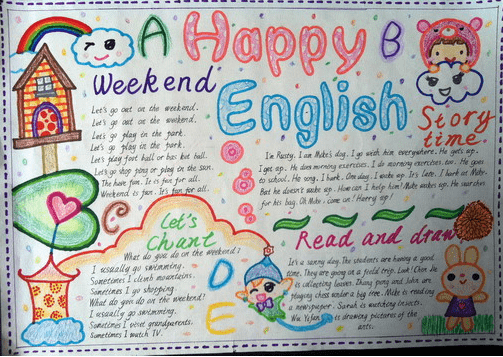 A Happy B
English
Weekend
Let's go out on the weekend.
Let's go out on the weekend.
Let's go play in the park.
Let's go play in the park.
Let's play foot ball or bas ket ball.
Let's go shop ping or play in the sun.
The have fun. It is fun for all.
Weekend is fun. It's fun for all.
Story
time.
I'm Rusty. I am Mike's dog. I go with him everywhere. He gets up.
I get up. He does morning exercises. I do morning exercises, too. He goes
to school. He sing. I bark. One day, I wake up. It's late. I bark at Mike.
But he doesn't wake up. How can I help him! Mike wakes up. He searches
for his bag. Oh Mike, come on! Hurry up!
C
Let's
Chant
What do you do on the weekend?
I usually go swimming.
Sometimes I climb mountains.
Sometimes I go shopping.
What do you do on the weekend?
I usually go swimming.
Sometimes I visit grandparents.
Sometimes I watch TV.
D
E
Read and draw
It's a sunny day. The students are having a good
time. They are on a field trip. Look! Chen Jie
is collecting leaves. Zhang peng and John are
playing chess under a big tree. Mike is reading
a newspaper. Sarah is watching insects.
Wu Yifan is drawing pictures of the
ants.